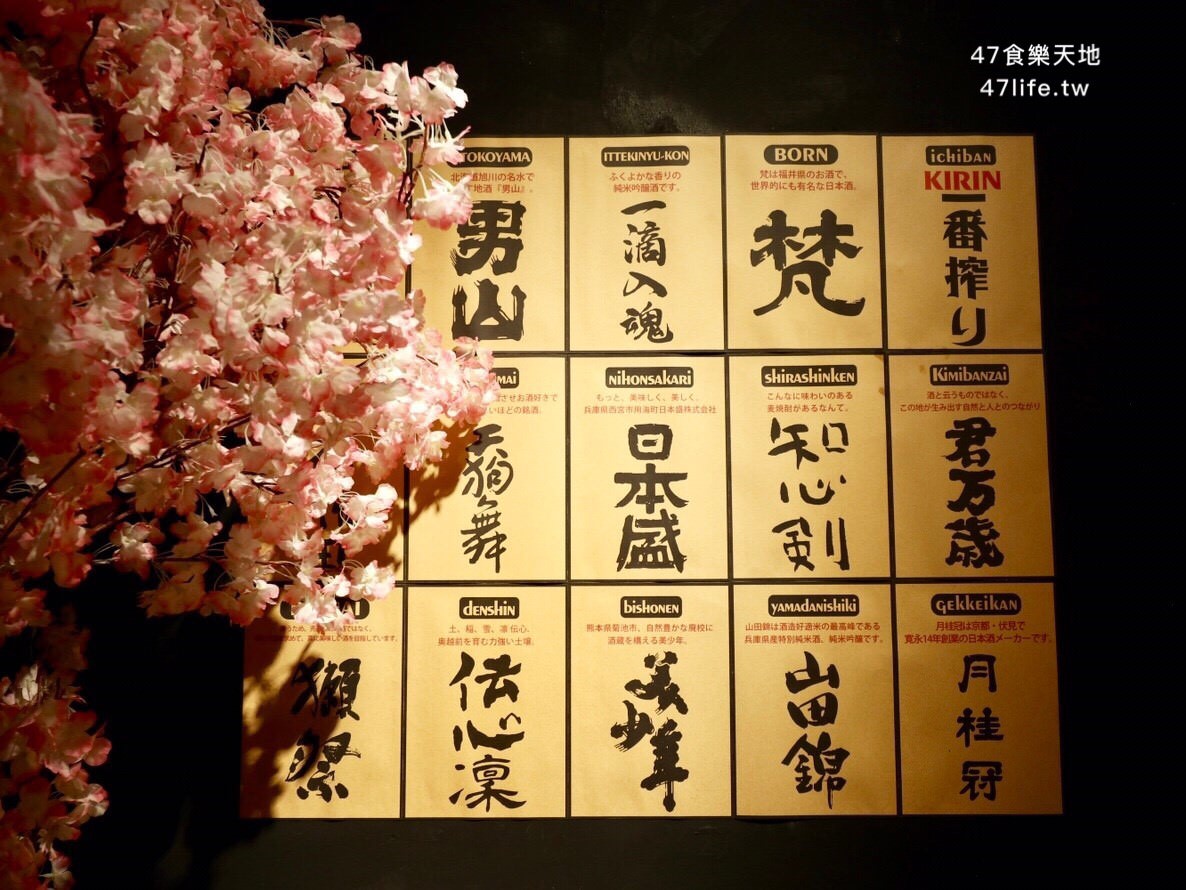 47食樂天地
47life.tw
TOKOYAMA
北海道旭川の名水で
地酒『男山』。
男山
ITTEKINYU-KON
ふくよかな香りの
純米吟醸酒です。
一滴入魂
BORN
梵は福井県のお酒で、
世界的にも有名な日本酒。
梵
ichiban
KIRIN
一番搾り
mai
させお酒好きで
いほどの銘酒。
天狗舞
NihonSakari
もっと、美味しく、美しく、
兵庫県西宮市用海町日本盛株式会社
日本盛
Shirashinken
こんなに味わいのある
麦焼酎があるなんて。
知心剣
Kimibanzai
酒と云うものではなく、
この地が生み出す自然と人とのつながり
君万歳
うため、
ではなく、
求めて、
味しい酒を目指しています。
獺祭
denshin
土、稲、雪、凛 伝心、
奥越前を育む力強い土壌。
伝心凛
bishonen
熊本県菊池市、自然豊かな廃校に
酒蔵を構える美少年。
美少年
yamadanishiki
山田錦は酒造好適米の最高峰である
兵庫県産特別純米酒、純米吟醸です。
山田錦
GEKKEIKAN
月桂冠は京都・伏見で
寛永14年創業の日本酒メーカーです。
月桂冠